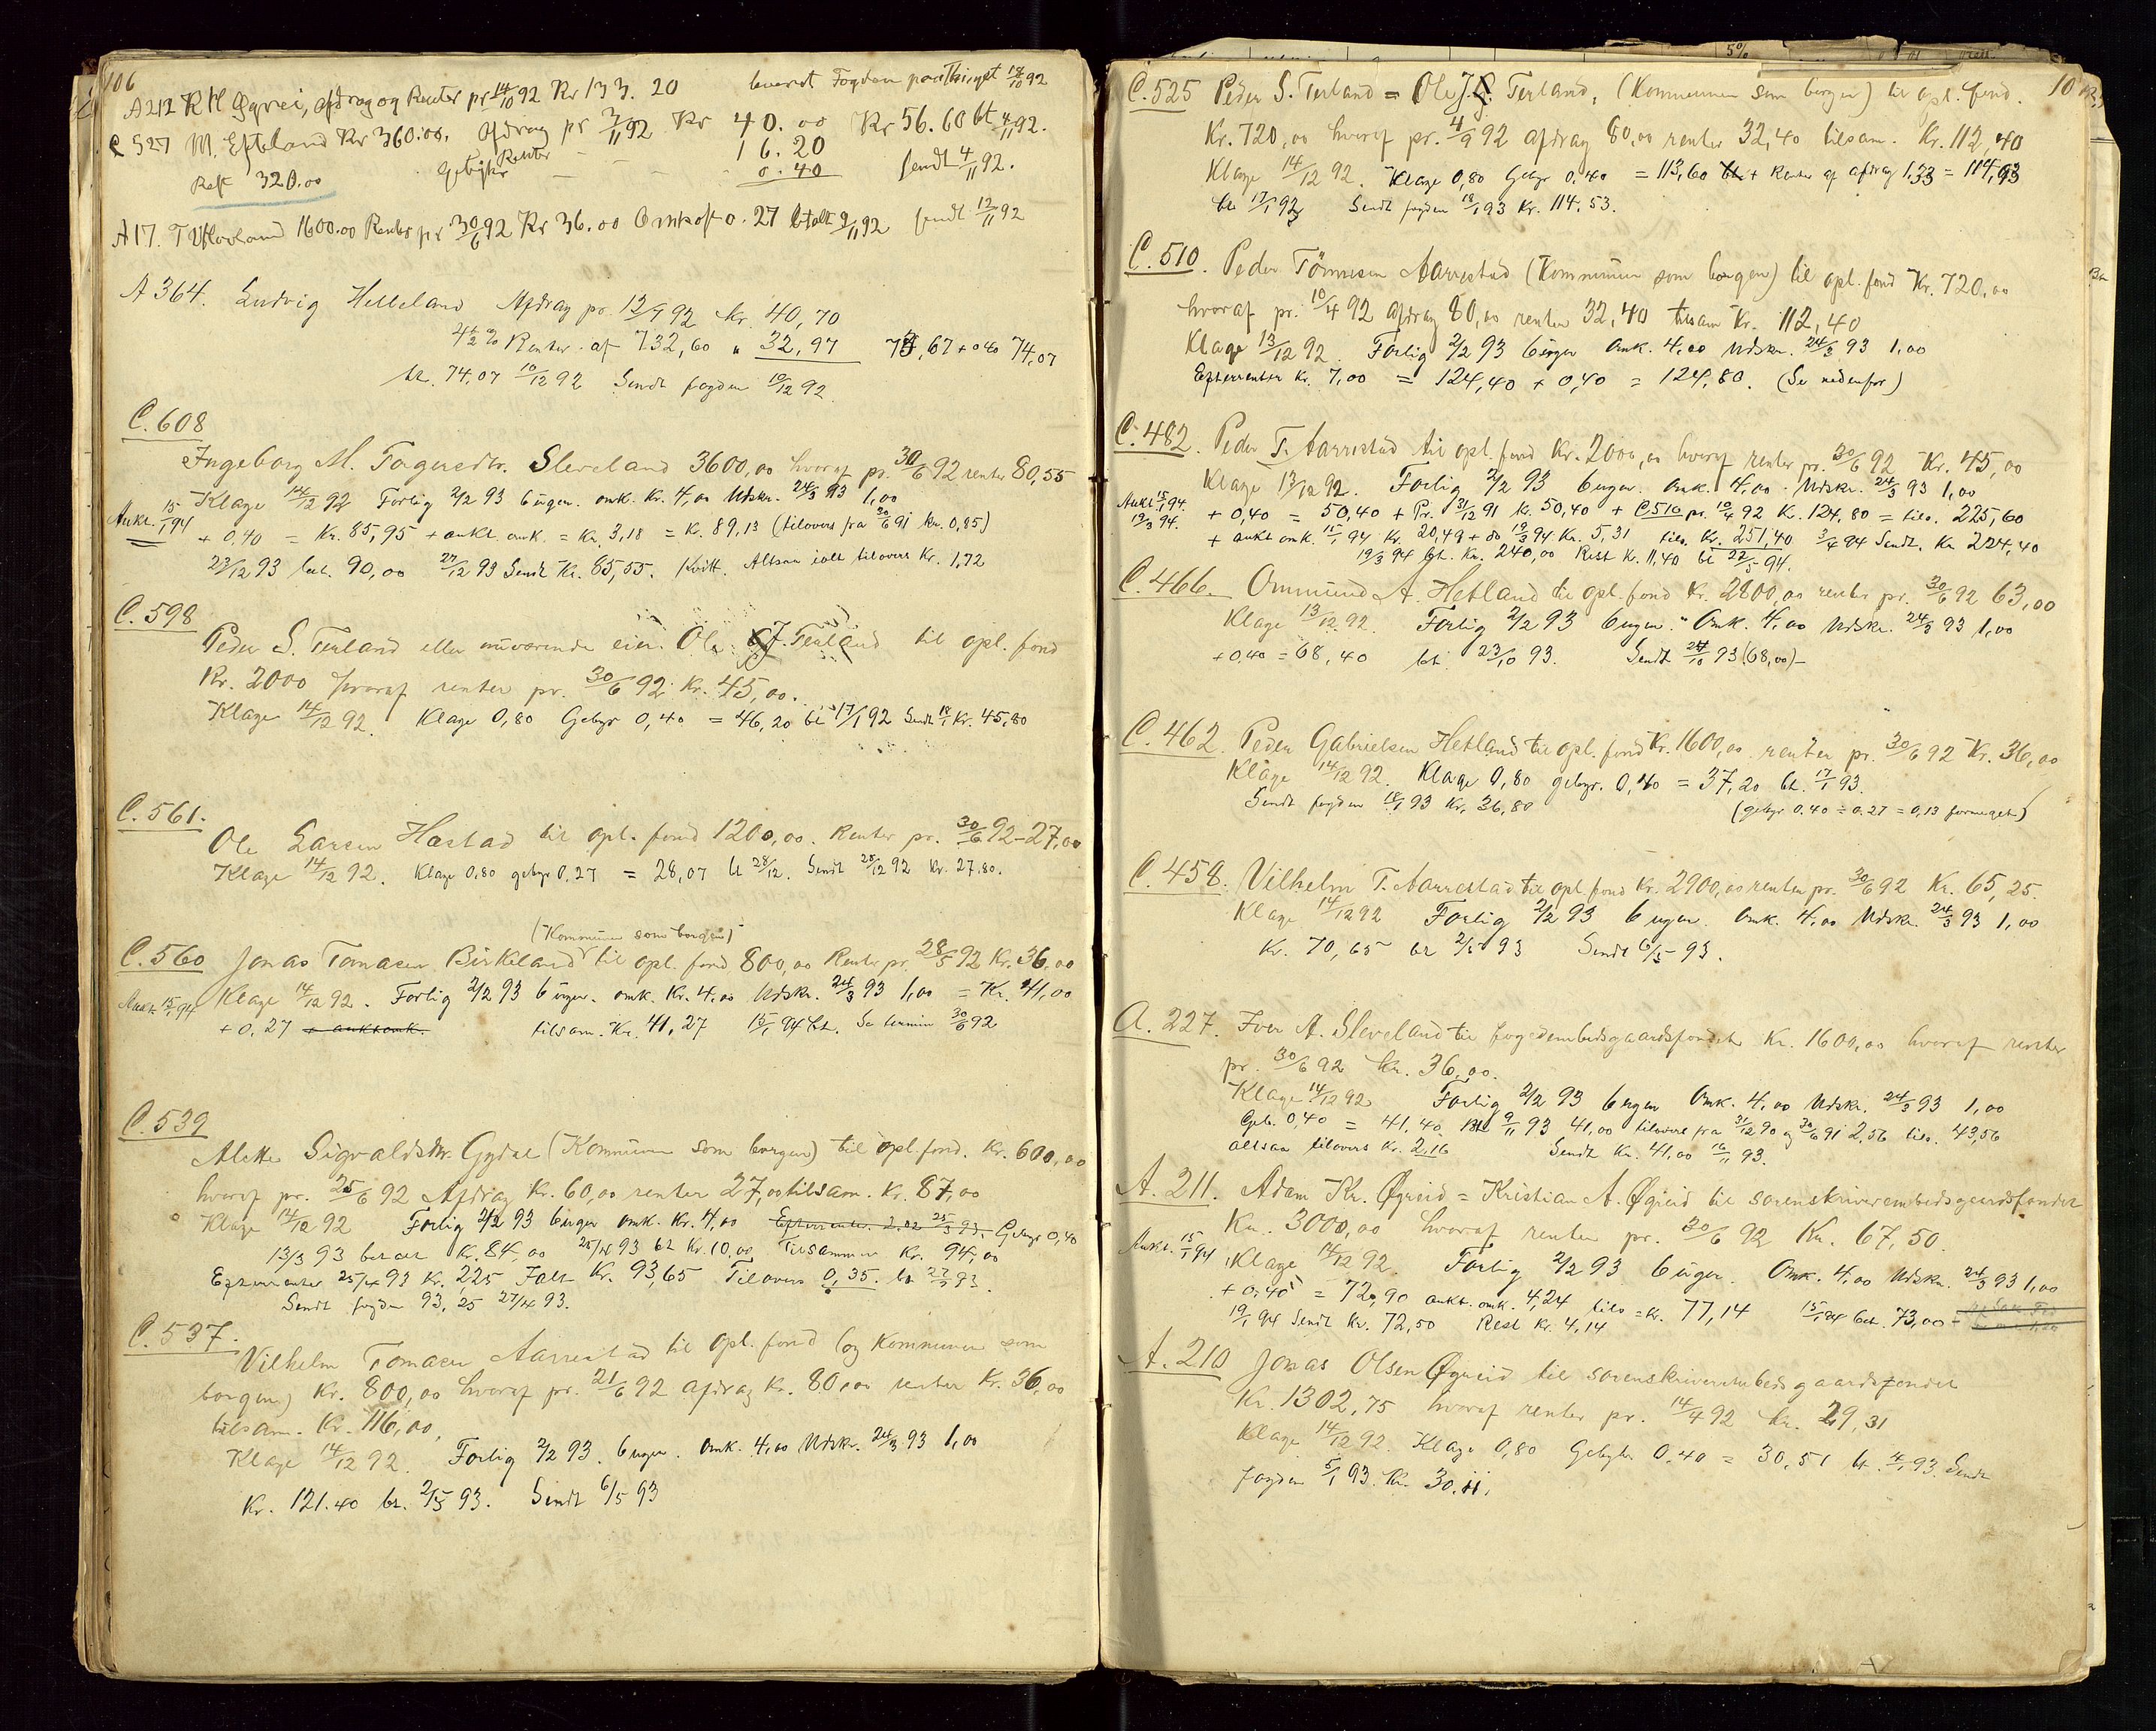 106
A212 K H Øgrei, afdrag og Renter pr 14/10 92 Kr 133. 20 leveret Fogden paa Thinget 18/10 92
C 527 M. Efteland Kr 360.00. Afdrag pr 3/11 92 Kr 40. 00 Kr 56. 60 bt 4/11 92.
Renter - - 16. 20
Rest 320.00 Gebyhr - - 0. 40 sendt 4/11 92.
A 17. T Hovland 1600.00 Renter pr 30/6 92 Kr 36. 00 Omkost 0. 27 betalt 9/11 92 sendt 12/11 92
A 364. Ludvig Helleland Afdrag pr. 12/9 92 Kr. 40, 70
4½ % Renter af 732,60 " 32, 97 73,67 + 040 74,07
bt. 74,07 10/12 92 Sendt fogden 10/12 92.
C. 608
Ingeborg M. Tageredtr. Sleveland 3600,00 hvoraf pr. 30/6 92 renter 80,55
Klage 14/12 92 Forlig 2/2 93 6 uger. omk. Kr. 4,00 Udskr. 24/3 93 1,00
Aukt. 15/1 94 + 0,40 = Kr. 85,95 + aukt. omk. = Kr. 3,18 = Kr. 89,13 (tilovers fra 30/6 91 Kr. 0,85)
23/12 93 bet. 90,00 27/12 93 Sendt Kr. 85,55. Kvitt. Altsaa ialt tilovers Kr. 1,72
C. 598
Peder S. Terland eller nuværende eier. Ole J. Terland til opl. fond
Kr. 2000 hvoraf renter pr. 30/6 92 Kr. 45,00.
Klage 14/12 92. Klage 0,80 Gebyr 0,40 = 46,20 bt 17/1 92 Sendt 18/1 Kr. 45,80
C. 561.
Ole Larsen Hæstad til opl. fond 1200,00. Renter pr. 30/6 92 - 27,00
Klage 14/12 92. Klage 0,80 gebyr 0,27 = 28,07 bt 28/12. Sendt 28/12 92 Kr. 27.80.
(Kommunen som borgen)
C. 560 Jonas Tomasen Birkeland til opl. fond 800,00 Renter pr. 28/5 92 Kr. 36,00
Aukt. 15/1 94 Klage 14/12 92. Forlig 2/2 93 6 uger. omk. Kr. 4,00 Udskr. 24/3 93 1,00 = Kr. 41,00
+ 0,27 + auktomk. tilsam. Kr. 41,27 15/1 94 bt. Se termin 30/6 92
C. 539
Mette Sigvaldsdtr. Gydal (Kommunen som borgen) til opl. fond. Kr. 600,00
hvoraf pr. 25/6 92 Afdrag Kr. 60,00 renter 27,00 tilsam. Kr. 87,00
Klage 14/12 92 Forlig 2/2 93 6 uger omk. Kr. 4,00 Efterrenter. 2,02 25/3 93. Gebyr 0,40
13/3 93 betalt Kr. 84,00 25/4 93 bt Kr. 10,00 Tilsammen Kr. 94,00
Efterrenter 25/4 93 Kr. 2,25 Ialt Kr. 93,65 Tilovers 0,35. bt 27/5 93.
Sendt fogden 93,25 27/4 93.
C. 537.
Vilhelm Tomasen Aarrestad til opl. fond (og Kommunen som
borgen) Kr. 800,00 hvoraf pr. 21/6 92 afdrag Kr. 80,00 renter Kr. 36,00
tilsam. Kr. 116,00.
Klage 14/12 92. Forlig 2/2 93. 6 uger. omk. 4,00 Udskr. 24/3 93 1,00
Kr. 121.40 bt. 2/5 93. Sendt 6/5 93
C. 525 Peder S. Terland = Ole J. Terland, (Kommunen som borgen) til opl. fond. 10
Kr. 720,00 hvoraf pr. 4/9 92 afdrag 80,00 renter 32,40 tilsam. Kr. 112,40
Klage 14/12 92. Klage 0,80 Gebyr 0,40 = 113,60 + Renter af afdrag 1,33 = 114,93
bt 17/1 93 Sendt fogden 18/1 93 Kr. 114.53.
C. 510. Peder Tönnesen Aarrestad (Kommunen som borgen) til opl. fond Kr. 720,00
hvoraf pr. 10/4 92 afdrag 80,00 renter 32,40 tilsam Kr. 112,40
Klage 13/12 92. Forlig 2/2 93 6 uger Omk. 4,00 Udskr. 24/3 93 1,00
Efterrenter Kr. 7,00 = 124,40 + 0,40 = 124,80. (Se nedenfor)
C. 482. Peder T. Aarrestad til opl. fond Kr. 2000,00 hvoraf renter pr. 30/6 92 Kr. 45,00
Klage 13/12 92. Forlig 2/2 93 6 uger. Omk. 4,00. Udskr. 24/3 93 1,00
Aukt 15/1 94. + 0,40 = 50,40 + Pr. 31/12 91 Kr. 50,40 + C 510 pr. 10/4 92 Kr. 124,80 = tils. 225,60
19/3 94. + aukt omk. 15/1 94 Kr. 20,49 + do 19/3 94 Kr. 5,31 tils. Kr. 251,40 3/4 94 Sendt. Kr 224,40
19/3 94 bt. Kr. 240,00 Rest Kr. 11,40 bt 22/5 94.
C. 466. Ommund A. Hetland til opl. fond Kr. 2800,00 renter pr. 30/6 92 63,00
Klage 13/12 92. Forlig 2/2 93 6 uger. Omk. 4,00 Udskr. 24/3 93 1,00
+ 0,40 = 68,40 bt. 23/10 93. Sendt 24/10 93 (68,00) -
C. 462. Peder Gabrielsen Hetland til opl. fond Kr. 1600,00 renter pr. 30/6 92 Kr. 36,00
Klage 14/12 92. Klage 0,80 gebyr. 0,40 = 37,20 bt. 17/1 93.
Sendt fogden 18/1 93 Kr. 36,80 (gebyr 0.40 ÷ 0.27 = 0,13 formeget)
C. 458. Vilhelm T. Aarrestad til opl. fond Kr. 2900,00 renter pr. 30/6 92 Kr. 65,25.
Klage 14/12 92 Forlig 2/2 93 6 uger. Omk. 4,00 Udskr. 24/3 93 1,00
Kr. 70,65 bt 2/5 93 Sendt 6/5 93.
A. 227. Iver A. Sleveland til fogedembedsgaardsfondet Kr. 1600,00 hvoraf renter
pr. 30/6 92 Kr. 36,00.
Klage 14/12 92 Forlig 2/2 93 6 uger Omk. 4,00 Udskr. 24/3 93 1,00
Geb. 0,40 = 41,40 Bt 9/11 93 41,00 tilovers fra 31/12 90 og 30/6 91 2,56 tils. 43,56
altsaa tilovers Kr. 2,16 Sendt Kr. 41,00 16/11 93.
A. 211. Adam Kr. Øgreid = Kristian A. Øgreid til sorenskriverembedsgaardsfondet
Kr. 3000,00 hvoraf renter pr. 30/6 92 Kr. 67,50.
Aukt. 15/1 94 Klage 14/12 92. Forlig 2/2 93 6 uger. Omk. 4,00 Udskr. 24/3 93 1,00
+ 0,40 = 72,90 aukt. omk. 4,24 tils = Kr. 77,14 15/1 94 bet. 73,00 -
19/1 94 Sendt Kr. 72,50 Rest Kr. 4,14
A. 210 Jonas Olsen Øgreid til sorenskriverembedsgaardsfondet
Kr. 1302,75 hvoraf renter pr. 14/4 92 Kr. 29,31
Klage 14/12 92. Klage 0,80 Gebyhr 0.40 = 30,51 bt. 4/1 93. Sendt
fogden 5/1 93. Kr. 30.11.